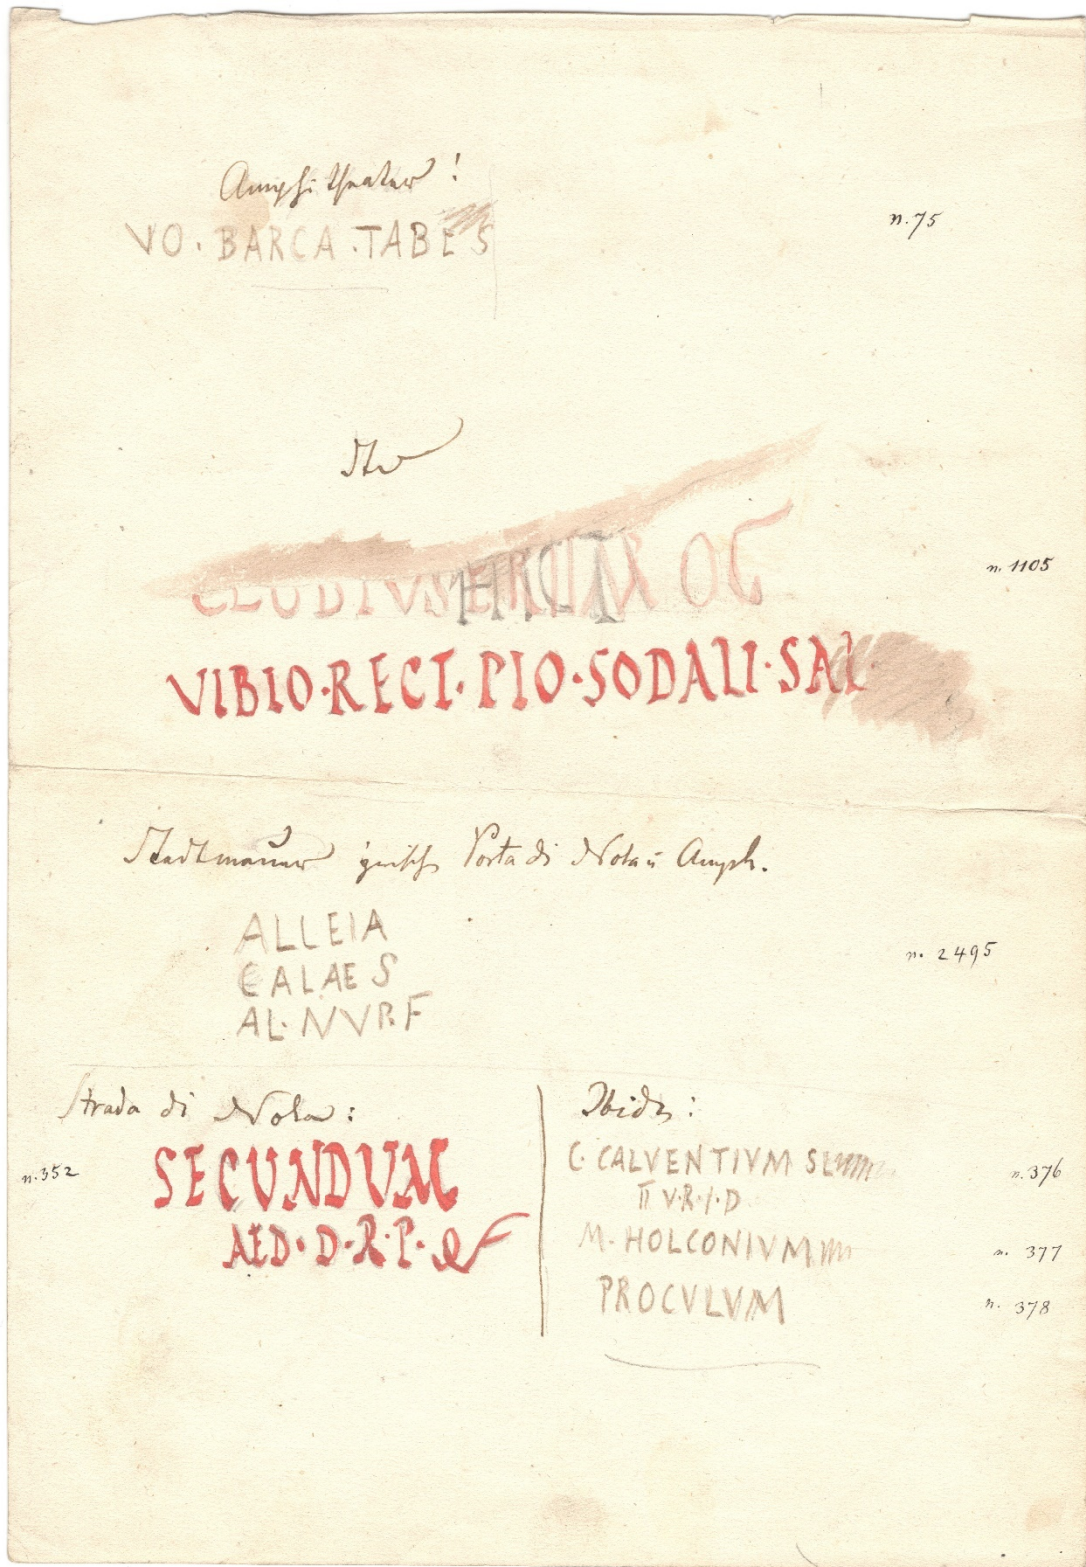 Amphitheater!
VO. BARCA .TABES
n. 75
Ibid
CLODIUS
n. 1105
VIBIO·RECT·PIO·SODALI·SAL
Stadtmauer zwisch Porta di Nola u Amph.
ALLEIA
CALAES
AL. NVP.F
n. 2495
Strada di Nola:
n. 352
SECUNDUM
AED·D·R·P·
Ibid:
C. CALVENTIVM S
n. 376
II V·R·I·D
M. HOLCONIVM
n. 377
PROCVLVM
n. 378